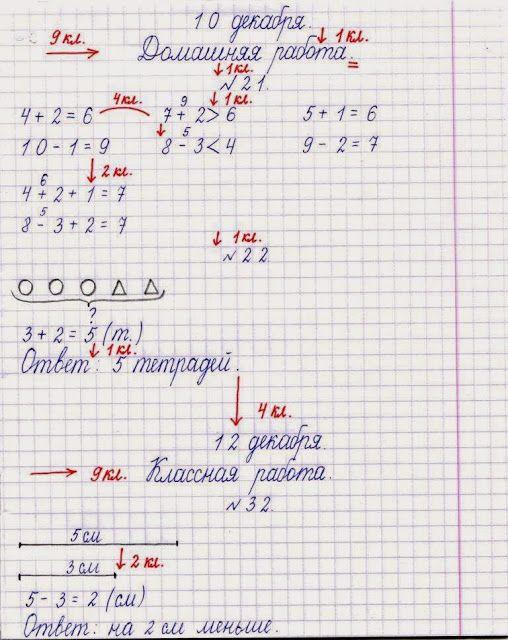 10 декабря.
9 кл. ↓ 1 кл.
Домашняя работа.
↓ 1 кл.
№ 21.
4 кл. 9 ↓ 1 кл.
4 + 2 = 6 7 + 2 > 6 5 + 1 = 6
5
10 - 1 = 9 8 - 3 < 4 9 - 2 = 7
↓ 2 кл.
6
4 + 2 + 1 = 7
5
8 - 3 + 2 = 7
↓ 1 кл.
№ 22.
?
3 + 2 = 5 (т.)
↓ 1 кл.
Ответ: 5 тетрадей.
4 кл.
12 декабря.
9 кл. Классная работа.
№ 32.
5 см
3 см ↓ 2 кл.
5 - 3 = 2 (см)
Ответ: на 2 см меньше.